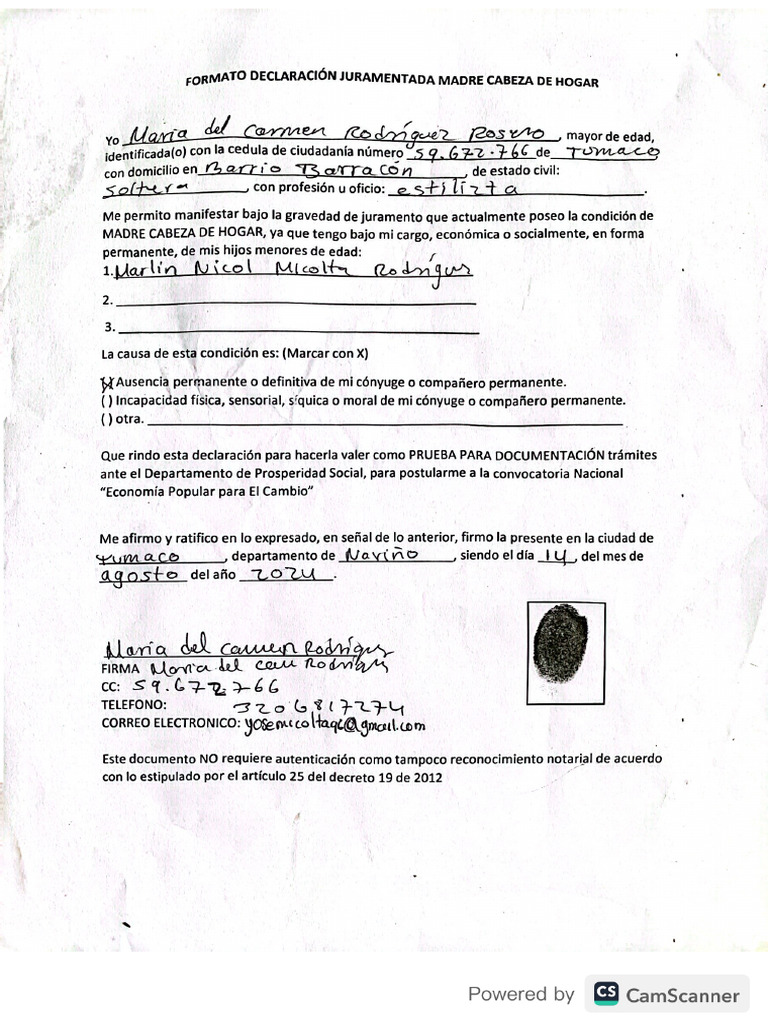 FORMATO DECLARACIÓN JURAMENTADA MADRE CABEZA DE HOGAR
Yo Maria del Carmen Rodríguez Rosero, mayor de edad,
identificada(o) con la cedula de ciudadanía número 59.672.766 de Tumaco
con domicilio en Barrio Barracón, de estado civil:
Soltera, con profesión u oficio: estilizta.
Me permito manifestar bajo la gravedad de juramento que actualmente poseo la condición de
MADRE CABEZA DE HOGAR, ya que tengo bajo mi cargo, económica o socialmente, en forma
permanente, de mis hijos menores de edad:
1. Marlin Nicol Micolta Rodrígues
2.
3.
La causa de esta condición es: (Marcar con X)
(X) Ausencia permanente o definitiva de mi cónyuge o compañero permanente.
( ) Incapacidad física, sensorial, síquica o moral de mi cónyuge o compañero permanente.
( ) otra.
Que rindo esta declaración para hacerla valer como PRUEBA PARA DOCUMENTACIÓN trámites
ante el Departamento de Prosperidad Social, para postularme a la convocatoria Nacional
"Economía Popular para El Cambio"
Me afirmo y ratifico en lo expresado, en señal de lo anterior, firmo la presente en la ciudad de
tumaco, departamento de Nariño, siendo el día 14, del mes de
agosto del año 2024.
María del Carmen Rodrígues
FIRMA Maria del Carm Rodrigues
CC: 59.672.766
TELEFONO: 3206817274
CORREO ELECTRONICO: yosemicoltaqc@gmail.com
Este documento NO requiere autenticación como tampoco reconocimiento notarial de acuerdo
con lo estipulado por el artículo 25 del decreto 19 de 2012
Powered by CS CamScanner